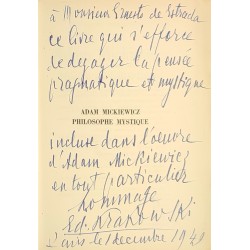 à Monsieur Ernesto de Estrada
ce livre qui s'efforce
de dégager la pensée
pragmatique et mystique
ADAM MICKIEWICZ
PHILOSOPHE MYSTIQUE
incluse dans l'oeuvre
d'Adam Mickiewicz
en tout particulier
hommage
Ed. Krakowski
Paris le 1 décembre 1940